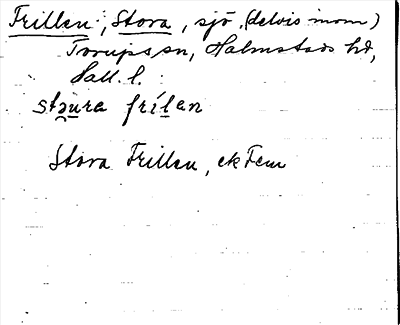 Frillen, Stora, sjö, (delvis inom)
Torups sn, Halmstads hd,
Hall. l.
stǫura frílan
Stora Frillen, ekFem